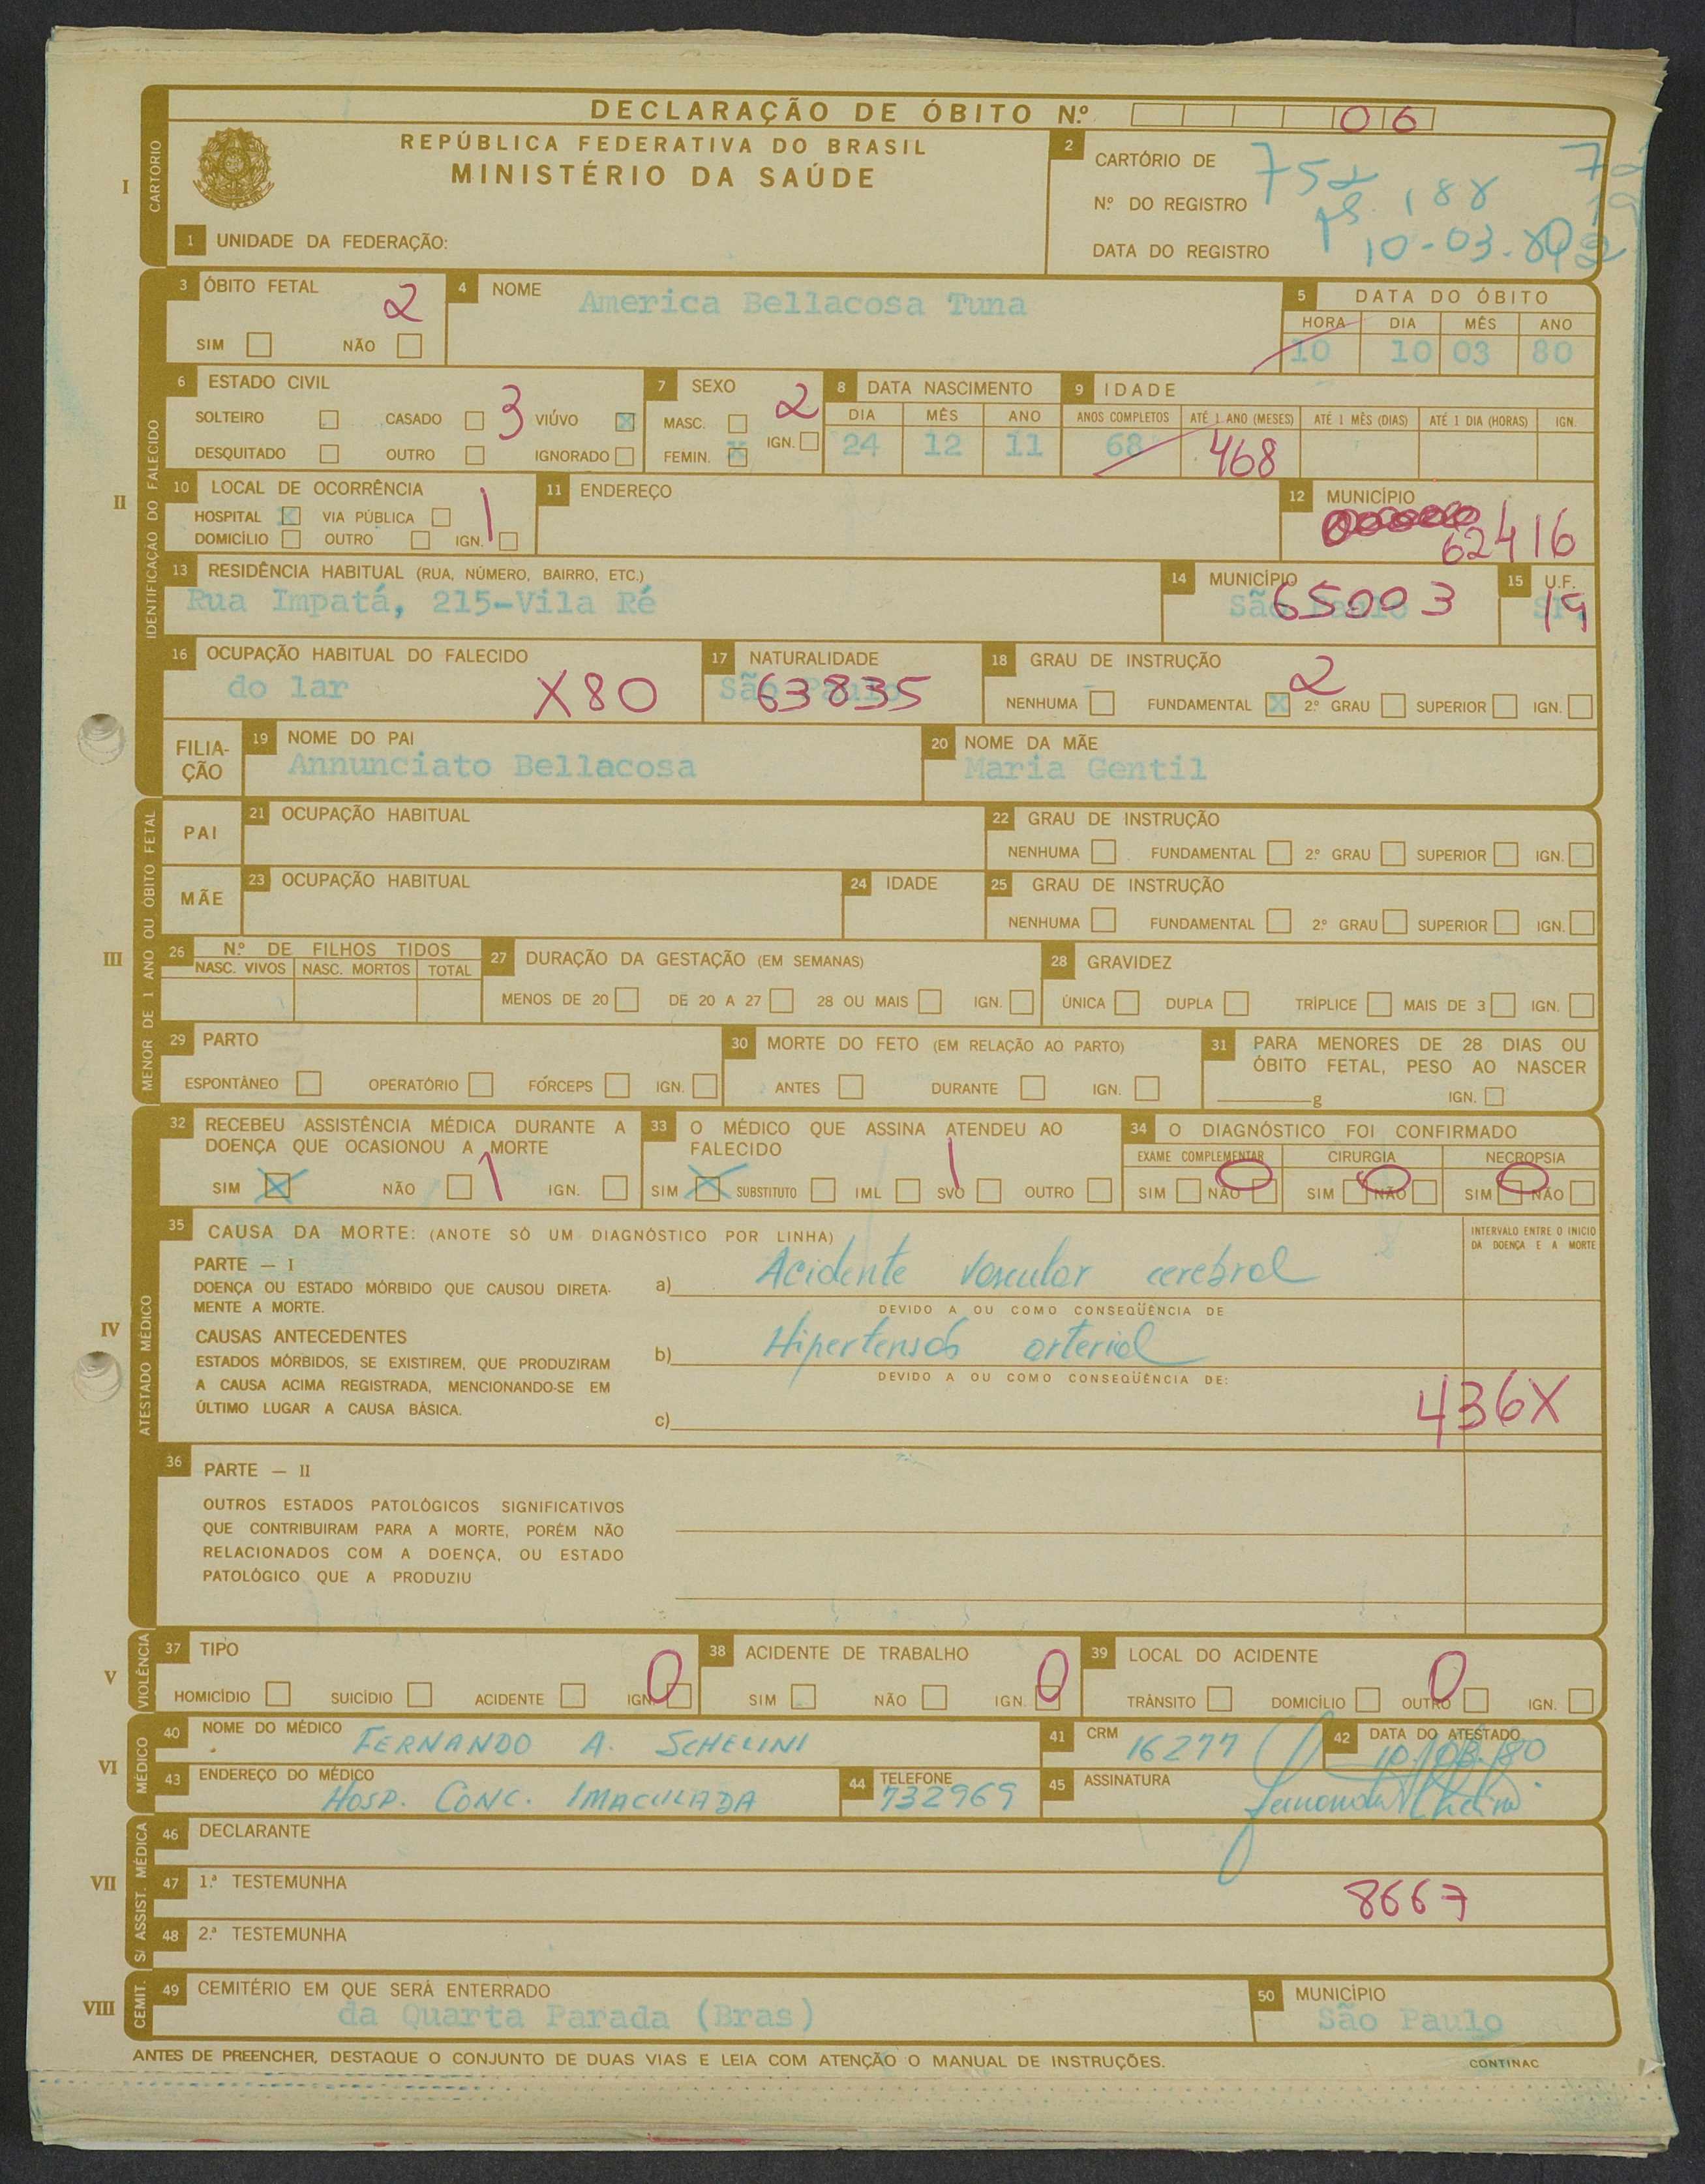 DECLARAÇÃO DE ÓBITO N.º 06
REPÚBLICA FEDERATIVA DO BRASIL
MINISTÉRIO DA SAÚDE
I
CARTÓRIO
1 UNIDADE DA FEDERAÇÃO:
2 CARTÓRIO DE
N.º DO REGISTRO 188
DATA DO REGISTRO 10-03-80
3 ÓBITO FETAL 2
SIM NÃO
4 NOME America Bellacosa Tuna
5 DATA DO ÓBITO
HORA DIA MÊS ANO
10 10 03 80
6 ESTADO CIVIL 3
SOLTEIRO CASADO VIÚVO X
DESQUITADO OUTRO IGNORADO
7 SEXO 2
MASC. IGN.
FEMIN. X
8 DATA NASCIMENTO
DIA MÊS ANO
24 12 11
9 IDADE
ANOS COMPLETOS ATÉ 1 ANO (MESES) ATÉ 1 MÊS (DIAS) ATÉ 1 DIA (HORAS) IGN.
68 468
II
IDENTIFICAÇÃO DO FALECIDO
10 LOCAL DE OCORRÊNCIA 1
HOSPITAL X VIA PÚBLICA
DOMICÍLIO OUTRO IGN.
11 ENDEREÇO
12 MUNICÍPIO
62416
13 RESIDÊNCIA HABITUAL (RUA, NÚMERO, BAIRRO, ETC.)
Rua Impatá, 215-Vila Ré
14 MUNICÍPIO
São Paulo 65003
15 U.F.
SP. 19
16 OCUPAÇÃO HABITUAL DO FALECIDO
do lar X80
17 NATURALIDADE
São Paulo 63835
18 GRAU DE INSTRUÇÃO 2
NENHUMA FUNDAMENTAL X 2.º GRAU SUPERIOR IGN.
FILIA-
ÇÃO
19 NOME DO PAI
Annunciato Bellacosa
20 NOME DA MÃE
Maria Gentil
III
MENOR DE 1 ANO OU ÓBITO FETAL
PAI
21 OCUPAÇÃO HABITUAL
22 GRAU DE INSTRUÇÃO
NENHUMA FUNDAMENTAL 2.º GRAU SUPERIOR IGN.
MÃE
23 OCUPAÇÃO HABITUAL
24 IDADE
25 GRAU DE INSTRUÇÃO
NENHUMA FUNDAMENTAL 2.º GRAU SUPERIOR IGN.
26 N.º DE FILHOS TIDOS
NASC. VIVOS NASC. MORTOS TOTAL
27 DURAÇÃO DA GESTAÇÃO (EM SEMANAS)
MENOS DE 20 DE 20 A 27 28 OU MAIS IGN.
28 GRAVIDEZ
ÚNICA DUPLA TRÍPLICE MAIS DE 3 IGN.
29 PARTO
ESPONTÂNEO OPERATÓRIO FÓRCEPS IGN.
30 MORTE DO FETO (EM RELAÇÃO AO PARTO)
ANTES DURANTE IGN.
31 PARA MENORES DE 28 DIAS OU
ÓBITO FETAL, PESO AO NASCER
g IGN.
32 RECEBEU ASSISTÊNCIA MÉDICA DURANTE A
DOENÇA QUE OCASIONOU A MORTE
SIM X NÃO 1 IGN.
33 O MÉDICO QUE ASSINA ATENDEU AO
FALECIDO 1
SIM X SUBSTITUTO IML SVO OUTRO
34 O DIAGNÓSTICO FOI CONFIRMADO
EXAME COMPLEMENTAR CIRURGIA NECROPSIA
SIM NÃO 0 SIM NÃO 0 SIM NÃO 0
IV
ATESTADO MÉDICO
35 CAUSA DA MORTE: (ANOTE SÓ UM DIAGNÓSTICO POR LINHA)
INTERVALO ENTRE O INICIO
DA DOENÇA E A MORTE
PARTE — I
DOENÇA OU ESTADO MÓRBIDO QUE CAUSOU DIRETA-
MENTE A MORTE.
a) Acidente vascular cerebral
DEVIDO A OU COMO CONSEQÜÊNCIA DE
CAUSAS ANTECEDENTES
ESTADOS MÓRBIDOS, SE EXISTIREM, QUE PRODUZIRAM
A CAUSA ACIMA REGISTRADA, MENCIONANDO-SE EM
ÚLTIMO LUGAR A CAUSA BÁSICA.
b) Hipertensão arterial
DEVIDO A OU COMO CONSEQÜÊNCIA DE:
c)
436X
36 PARTE — II
OUTROS ESTADOS PATOLÓGICOS SIGNIFICATIVOS
QUE CONTRIBUIRAM PARA A MORTE, PORÉM NÃO
RELACIONADOS COM A DOENÇA, OU ESTADO
PATOLÓGICO QUE A PRODUZIU
V
VIOLÊNCIA
37 TIPO
HOMICÍDIO SUICÍDIO ACIDENTE IGN. 0
38 ACIDENTE DE TRABALHO
SIM NÃO IGN. 0
39 LOCAL DO ACIDENTE
TRÂNSITO DOMICÍLIO OUTRO 0 IGN.
VI
MÉDICO
40 NOME DO MÉDICO FERNANDO A. SCHELINI
41 CRM 16277
42 DATA DO ATESTADO
10/03/80
43 ENDEREÇO DO MÉDICO
HOSP. CONC. IMACULADA
44 TELEFONE
732969
45 ASSINATURA
VII
S/ ASSIST. MÉDICA
46 DECLARANTE
47 1.ª TESTEMUNHA
8667
48 2.ª TESTEMUNHA
VIII
CEMIT.
49 CEMITÉRIO EM QUE SERÁ ENTERRADO
da Quarta Parada (Bras)
50 MUNICÍPIO
São Paulo
ANTES DE PREENCHER, DESTAQUE O CONJUNTO DE DUAS VIAS E LEIA COM ATENÇÃO O MANUAL DE INSTRUÇÕES.
CONTINAC